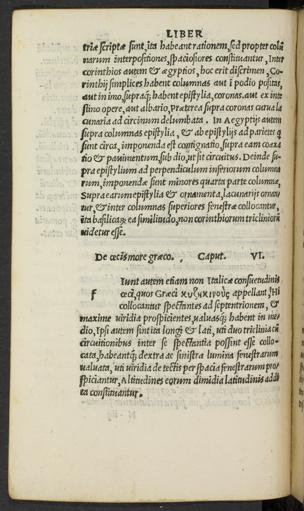 LIBER
triæ scriptæ sunt, ita habeant rationem, sed propter colũ
narum interpositiones, spaciosiores constituantur, Inter
corinthios autem & ægyptios, hoc erit discrimen, Co-
rinthij simplices habent columnas aut ĩ podio positas,
aut in imo, supraq; habent epistylia, coronas, aut ex inte
stino opere, aut albario, Præterea supra coronas curua la
cunaria ad circinum delumbata. In Aegyptijs autem
supra columnas epistylia, & ab epistylijs ad parietes q̃
sunt circa, imponenda est contignatio, supra eam coaxa
tio & pauimentum, sub dio, ut sit circuitus. Deinde su-
pra epistylium ad perpendiculum inferiorum columna
rum, imponendæ sunt minores quarta parte columnæ,
Supra earum epistylia & ornamenta, lacunarijs ornan
tur, & inter columnas superiores fenestræ collocantur,
ita basilicarum ea similitudo, non corinthiorum tricliniorũ
uidetur esse.
De œcis more græco. Caput. VI.
f Iunt autem etiam non Italicæ consuetudinis
œci, quos Græci κυζικηνοὺς appellant, Hi
collocantur spectantes ad septentrionem, &
maxime uiridia prospicientes, ualuasq; habent in me-
dio, Ipsi autem sint ita longi & lati, uti duo triclinia cũ
circuitionibus inter se spectantia possint esse collo-
cata, habeantq; dextra ac sinistra lumina fenestrarum
ualuata, uti uiridia de tectis per spacia fenestrarum pro-
spiciantur, Altitudines eorum dimidia latitudinis addi
ta constituantur.